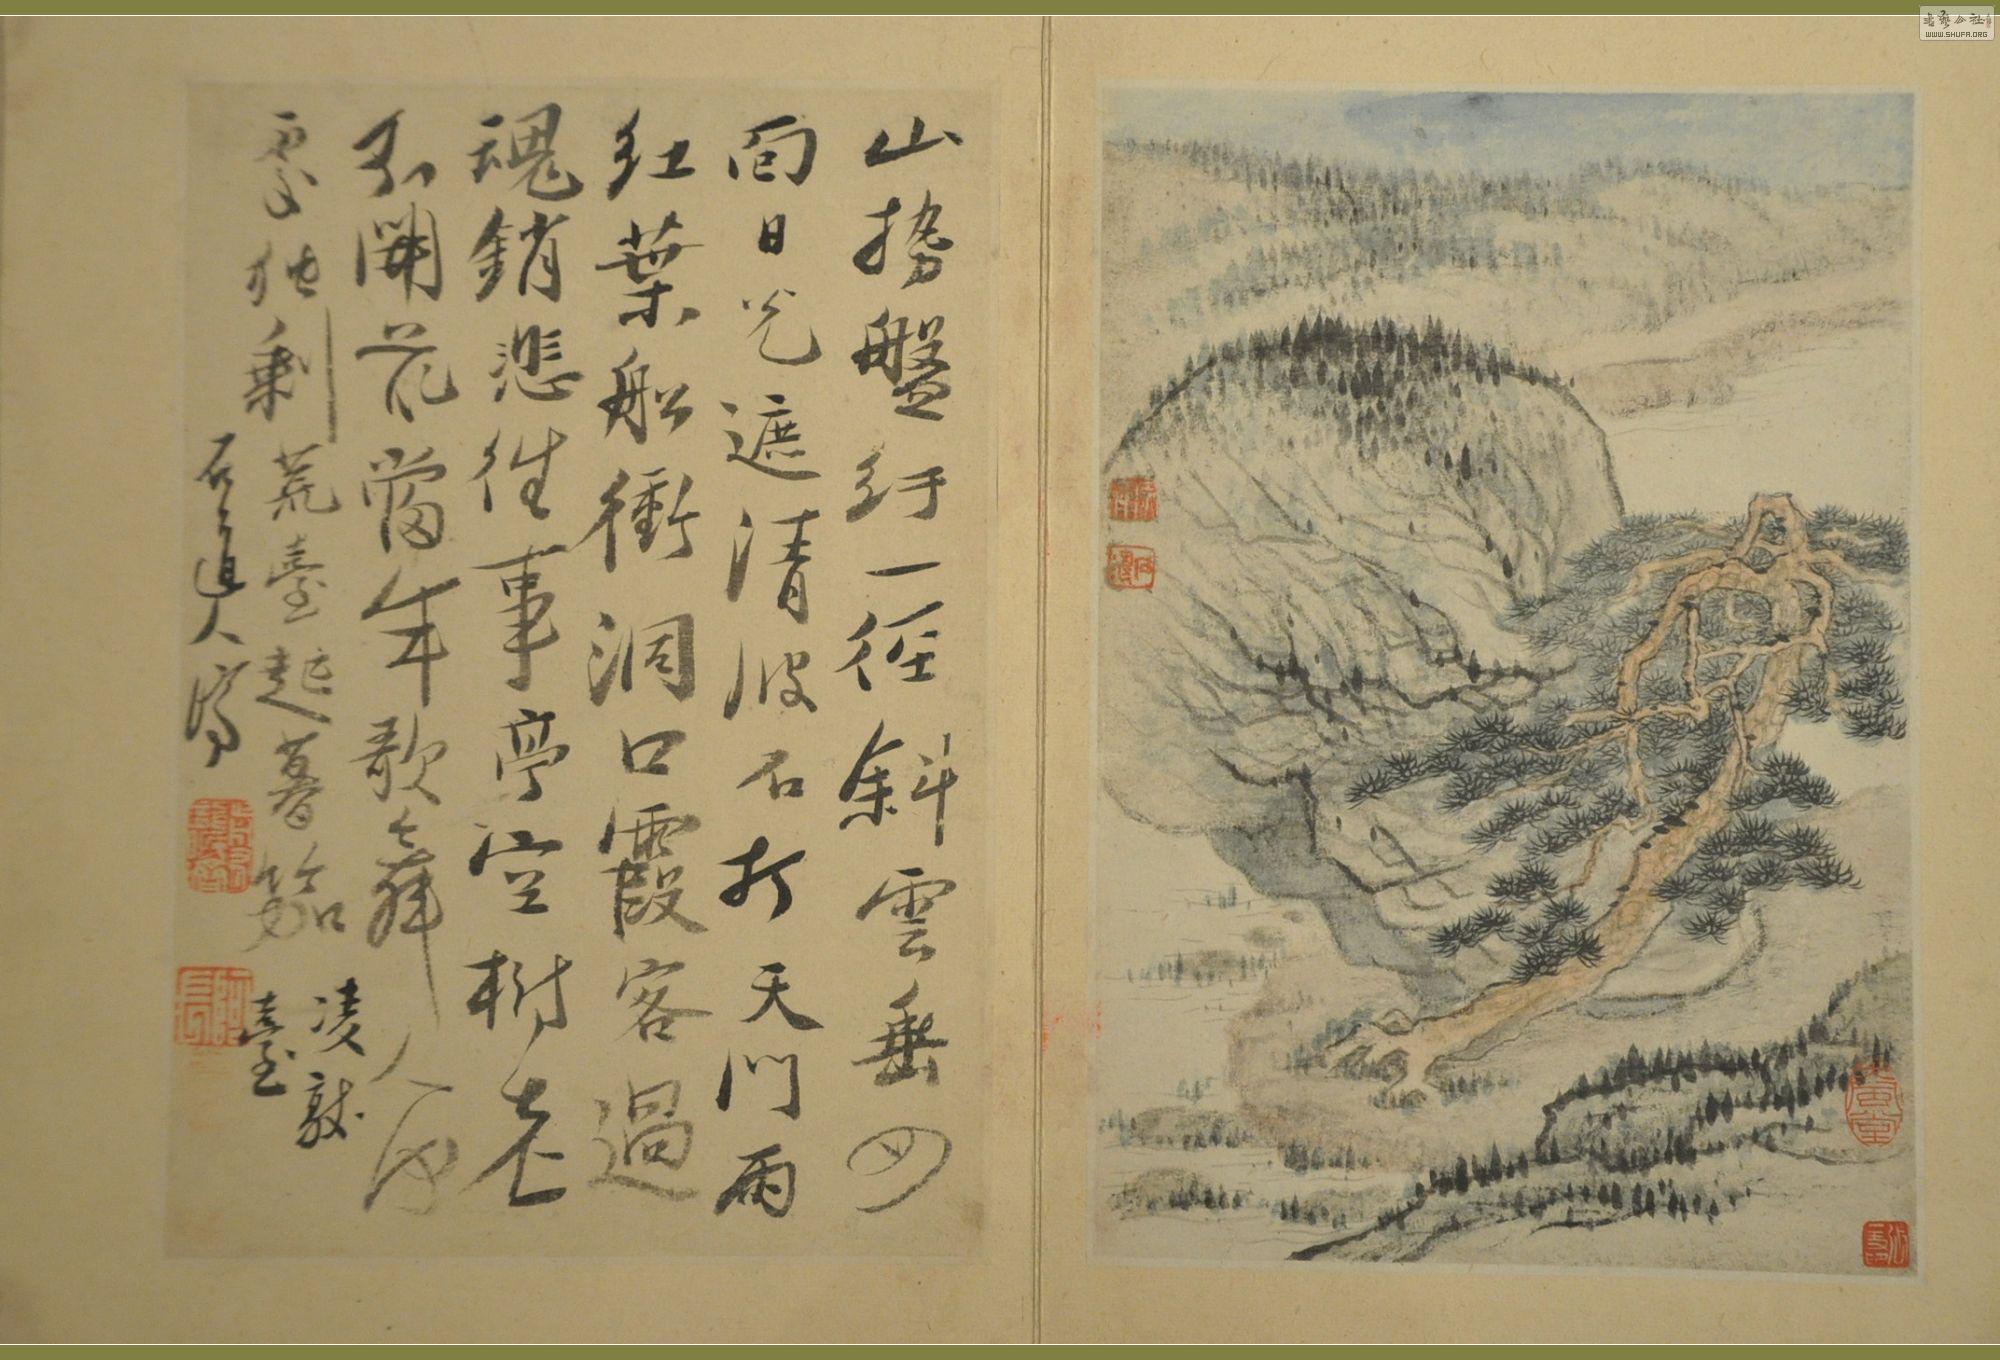 山勢盤紆一徑斜雲垂四
面日光遮清波石打天門雨
紅葉船衝洞口霞客過
魂銷悲往事亭空樹老
不開花當年歌舞人何
處独剩荒臺起暮笳
凌歊
臺
石道人寫
书艺公社
WWW.SHUFA.ORG